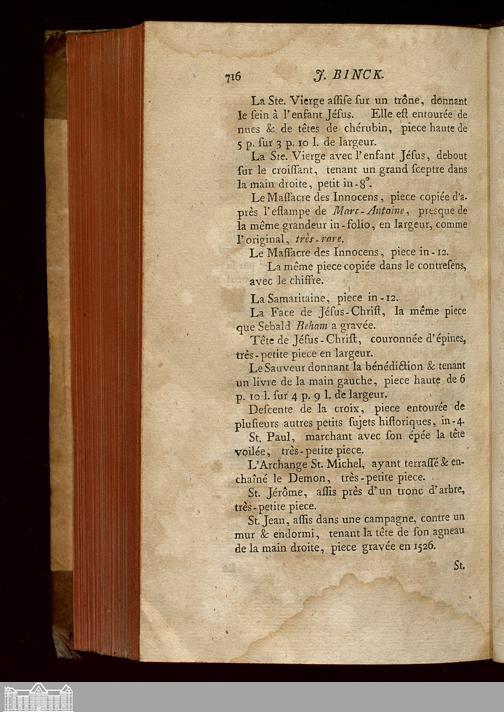 716 J. BINCK.
La Ste. Vierge aſſiſe ſur un trône, donnant
le ſein à l'enfant Jéſus. Elle eſt entourée de
nues & de têtes de chérubin, piece haute de
5 p. ſur 3 p. 10 l. de largeur.
La Ste. Vierge avec l'enfant Jéſus, debout
ſur le croiſſant, tenant un grand ſceptre dans
la main droite, petit in-8°.
Le Maſſacre des Innocens, piece copiée d'a-
près l'eſtampe de Marc-Antoine, presque de
la même grandeur in-folio, en largeur, comme
l'original, très-rare.
Le Maſſacre des Innocens, piece in-12.
La même piece copiée dans le contreſens,
avec le chiffre.
La Samaritaine, piece in-12.
La Face de Jéſus-Chriſt, la même piece
que Sebald Beham a gravée.
Tête de Jéſus-Chriſt, couronnée d'épines,
très-petite piece en largeur.
Le Sauveur donnant la bénédiction & tenant
un livre de la main gauche, piece haute de 6
p. 10 l. ſur 4 p. 9 l. de largeur.
Deſcente de la croix, piece entourée de
pluſieurs autres petits ſujets hiſtoriques, in-4.
St. Paul, marchant avec ſon épée la tête
voilée, très-petite piece.
L'Archange St. Michel, ayant terraſſé & en-
chaîné le Demon, très-petite piece.
St. Jérôme, aſſis près d'un tronc d'arbre,
très-petite piece.
St. Jean, aſſis dans une campagne, contre un
mur & endormi, tenant la tête de ſon agneau
de la main droite, piece gravée en 1526.
St.